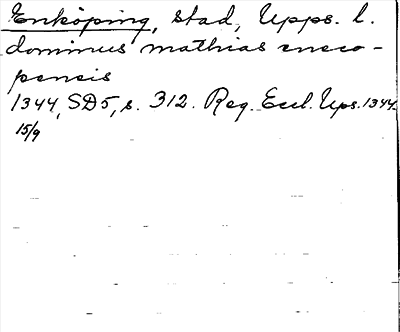 Enköping, stad, Upps. l.
dominus mathias eneco-
pensis
1344, SD5, s. 312. Reg. Eccl. Ups. 1344
15/9